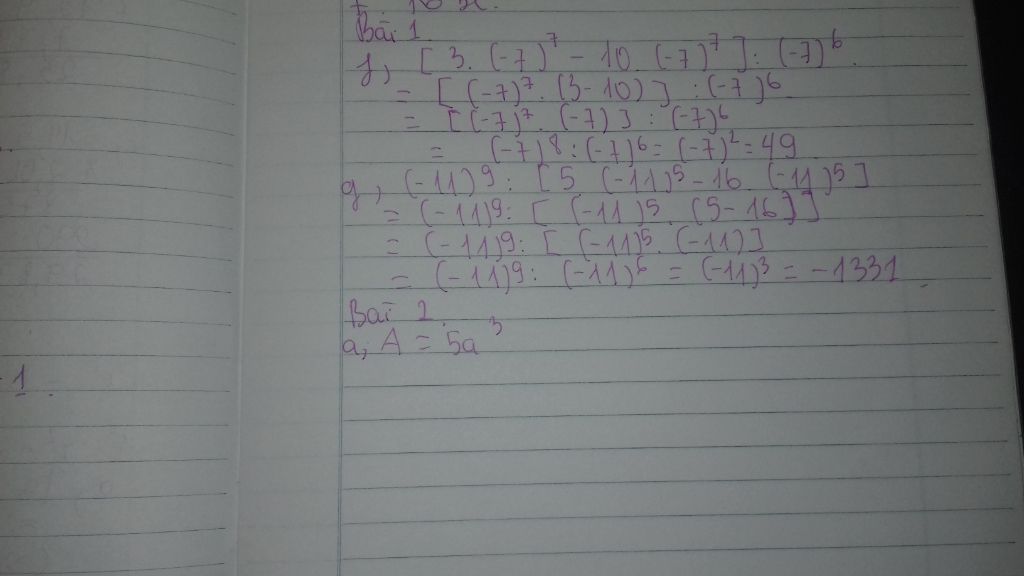 Bài 1
f, [ 3 . (-7)⁷ - 10 . (-7)⁷ ] : (-7)⁶ .
= [ (-7)⁷ . (3-10) ] : (-7)⁶
= [(-7)⁷ . (-7) ] : (-7)⁶
= (-7)⁸ : (-7)⁶ = (-7)² = 49
g, (-11)⁹ : [ 5 . (-11)⁵ - 16 . (-11)⁵ ]
= (-11)⁹ : [ (-11)⁵ . (5-16] ]
= (-11)⁹ : [ (-11)⁵ . (-11) ]
= (-11)⁹ : (-11)⁶ = (-11)³ = -1331 .
Bài 2 .
a, A = 5a³
1 .